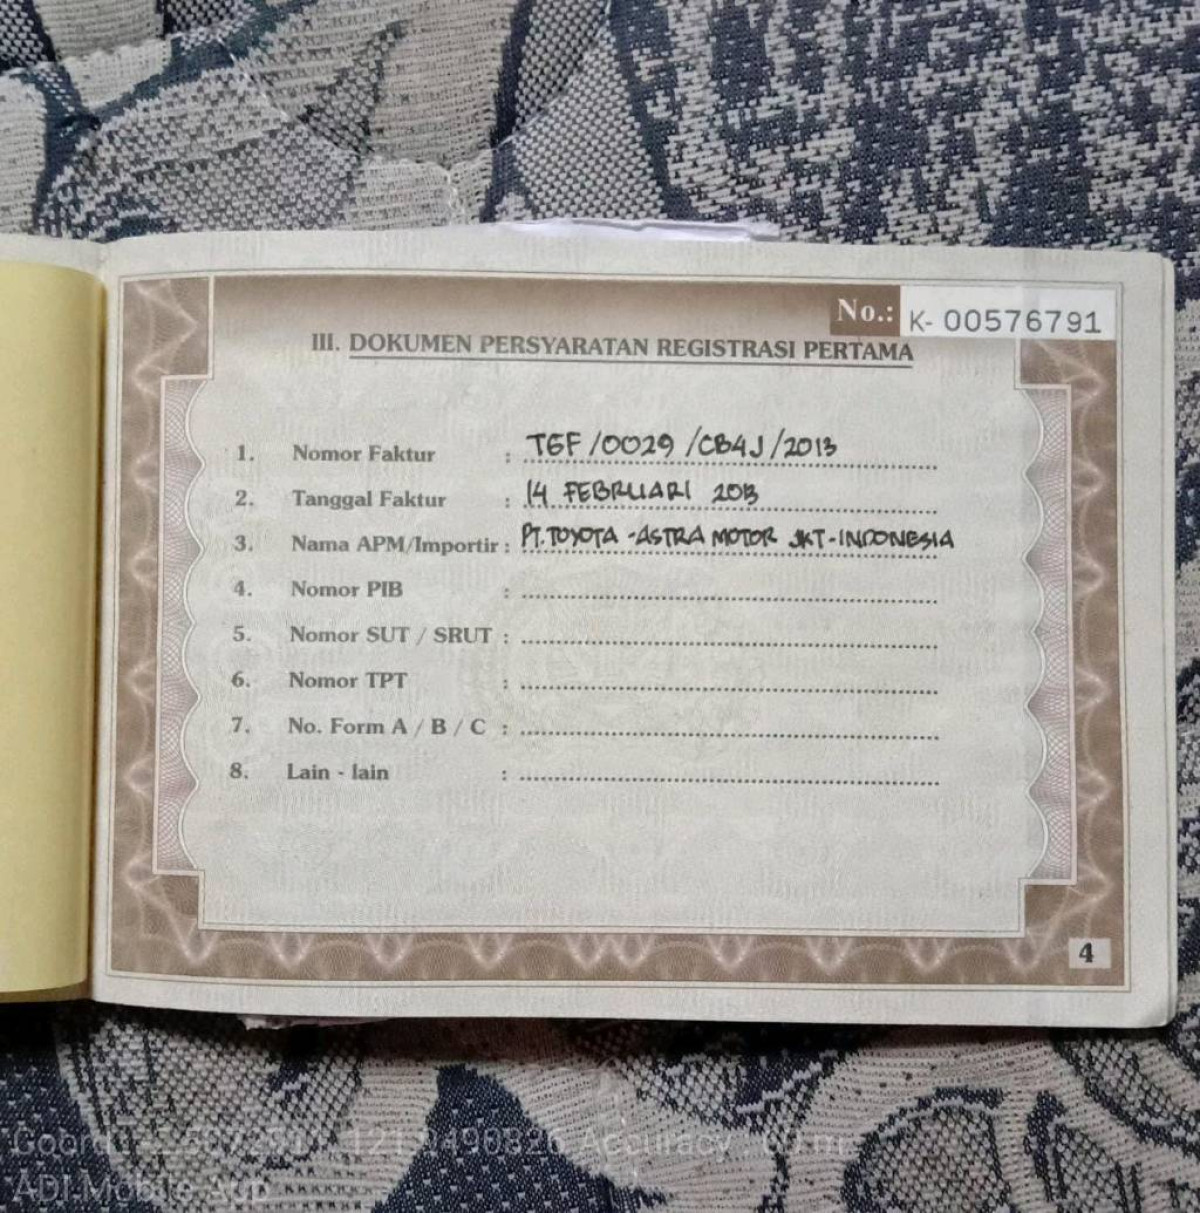 No.: K- 00576791
III. DOKUMEN PERSYARATAN REGISTRASI PERTAMA
1. Nomor Faktur : TGF/0029/CB4J/2013
2. Tanggal Faktur : 14 FEBRUARI 2013
3. Nama APM/Importir : PT. TOYOTA -ASTRA MOTOR JKT-INDONESIA
4. Nomor PIB :
5. Nomor SUT / SRUT :
6. Nomor TPT :
7. No. Form A / B / C :
8. Lain - lain :
4
Accuracy :
ADI-Mobile App